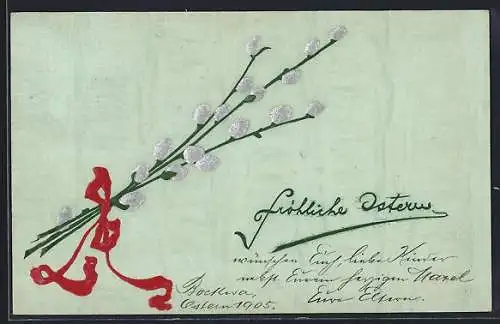 Fröhliche Ostern
wünschen Euch, liebe Kinder
nebst Eurem herzigen
Eure Eltern.
Bockwa,
Ostern 1905.